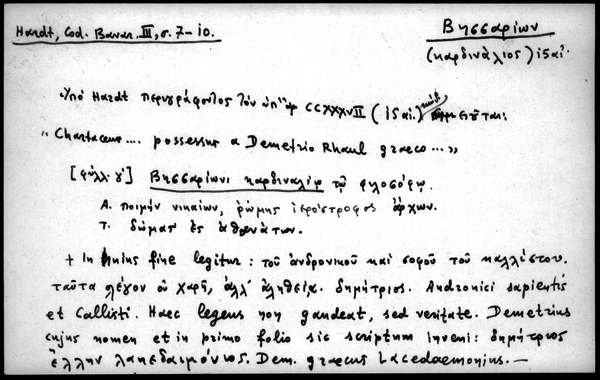 Hardt, Cod. Bavar. III, σ. 7-10.
Βησσαρίων
(καρδινάλιος) 15 αἰ.
Ὑπὸ Hardt περιγράφοντος τὸν ὑπ' ἀρ. CCXXXVII (15 αἰ.) εται:
"Chartaceus.... possessus a Demetrio Rhaul graeco ..."
[φύλλ. γ'] Βησσαρίωνι καρδιναλίῳ τῷ φιλοσόφῳ.
Α. ποιμὴν νικαίων, ῥώμης ἱερόστροφος ἄρχων.
Τ. δώματ' ἐς ἀθανάτων.
+ In huius fine legitur: τοῦ ἀνδρονικοῦ καὶ σοφοῦ τοῦ καλλίστου.
ταῦτα λέγον οὐ χαρῇ, ἀλλ' ἀληθείᾳ. δημήτριος. Andronici sapientis
et Callisti. Haec legens non gaudeat, sed veritate. Demetrius
cujus nomen et in primo folio sic scriptum inveni: δημήτριος
ἕλλην λακεδαιμόνιος. Dem. graecus Lacedaemonius. —